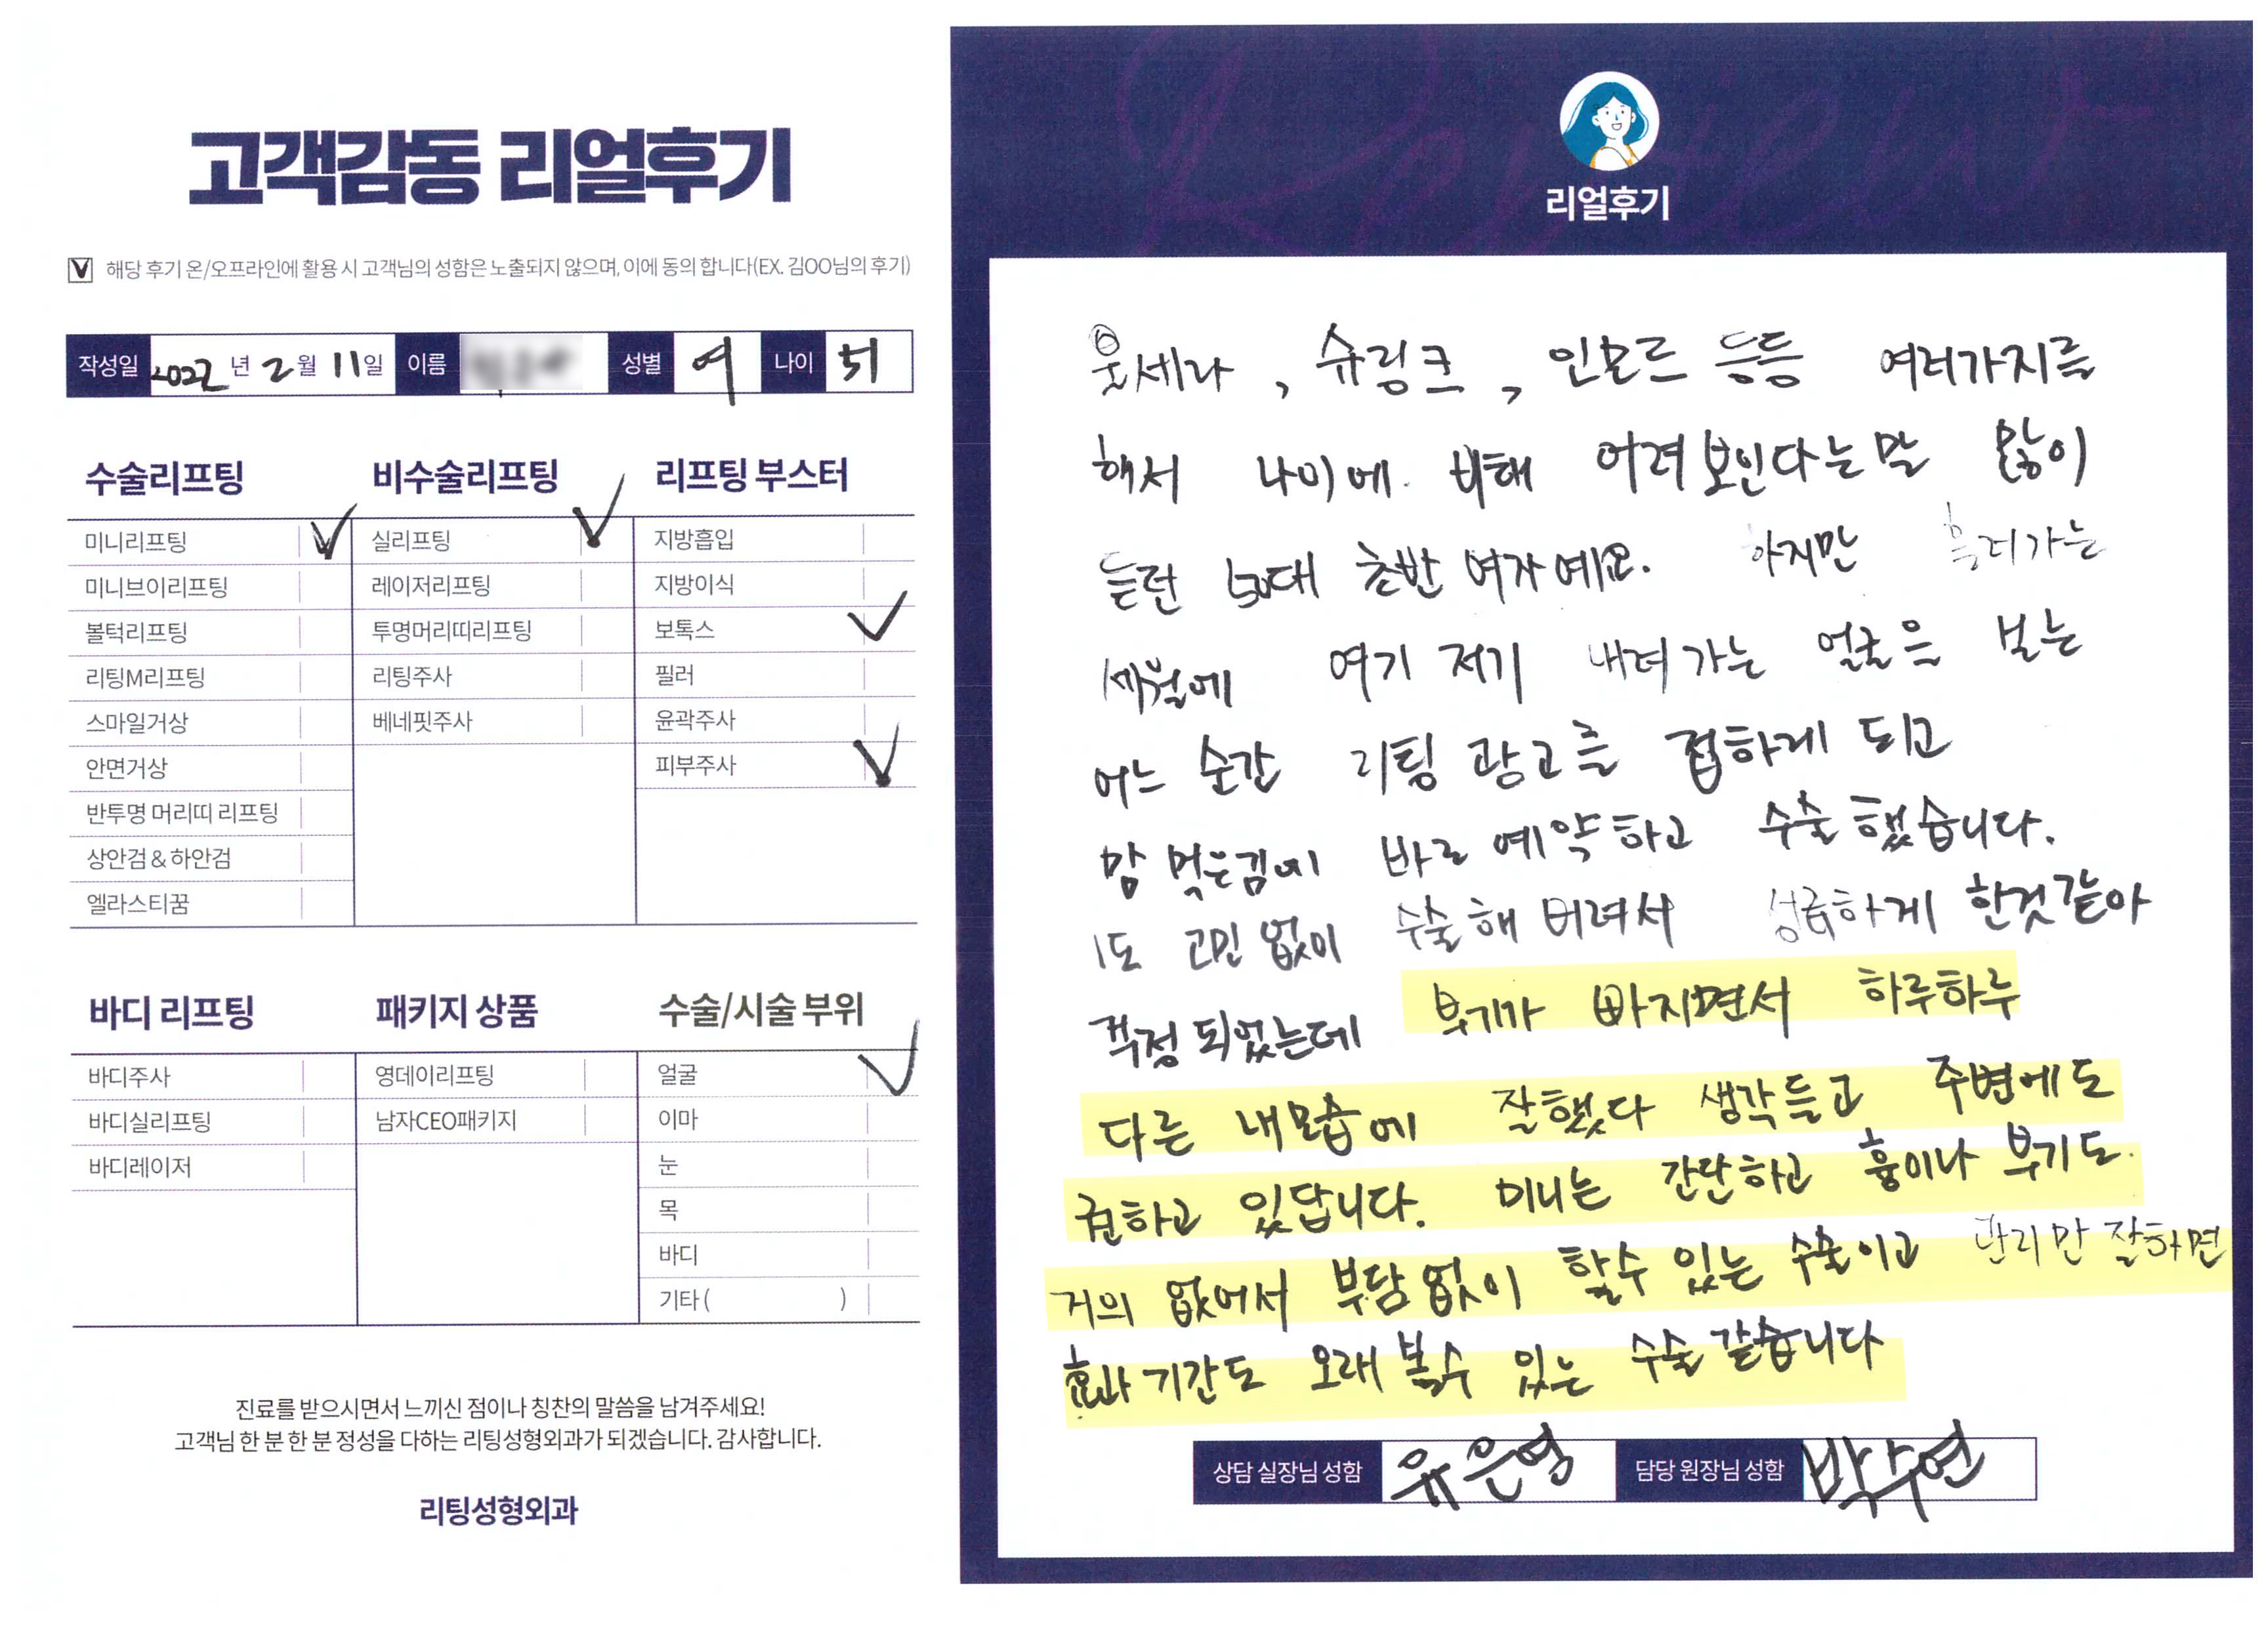 고객감동 리얼후기
V 해당 후기 온/오프라인에 활용 시 고객님의 성함은 노출되지 않으며, 이에 동의 합니다(EX. 김OO님의 후기)
작성일 2022 년 2 월 11 일 이름 성별 여 나이 51
수술리프팅 비수술리프팅 리프팅 부스터
미니리프팅 ✓ 실리프팅 ✓ 지방흡입
미니브이리프팅 레이저리프팅 지방이식
볼턱리프팅 투명머리띠리프팅 보톡스 ✓
리팅M리프팅 리팅주사 필러
스마일거상 베네핏주사 윤곽주사
안면거상 피부주사 ✓
반투명 머리띠 리프팅
상안검 & 하안검
엘라스티꿈
바디 리프팅 패키지 상품 수술/시술 부위
바디주사 영데이리프팅 얼굴 ✓
바디실리프팅 남자CEO패키지 이마
바디레이저 눈
목
바디
기타 ( )
진료를 받으시면서 느끼신 점이나 칭찬의 말씀을 남겨주세요!
고객님 한 분 한 분 정성을 다하는 리팅성형외과가 되겠습니다. 감사합니다.
리팅성형외과
Review
리얼후기
울세라, 슈링크, 인모드 등등 여러가지를
해서 나이에 비해 어려보인다는 말 많이
듣던 50대 초반 여자예요. 하지만 흘러가는
세월에 여기 저기 내려가는 얼굴을 보는
어느 순간 리팅 광고를 접하게 되고
맘 먹은김에 바로 예약하고 수술했습니다.
1도 고민 없이 수술해 버려서 성급하게 한것같아
걱정 되었는데 부기가 빠지면서 하루하루
다른 내모습에 잘했다 생각들고 주변에도
권하고 있답니다. 미니는 간단하고 흉이나 부기도
거의 없어서 부담없이 할수 있는 수술이고 관리만 잘하면
효과기간도 오래 볼수 있는 수술 같습니다
상담 실장님 성함 유은영 담당 원장님 성함 박수연